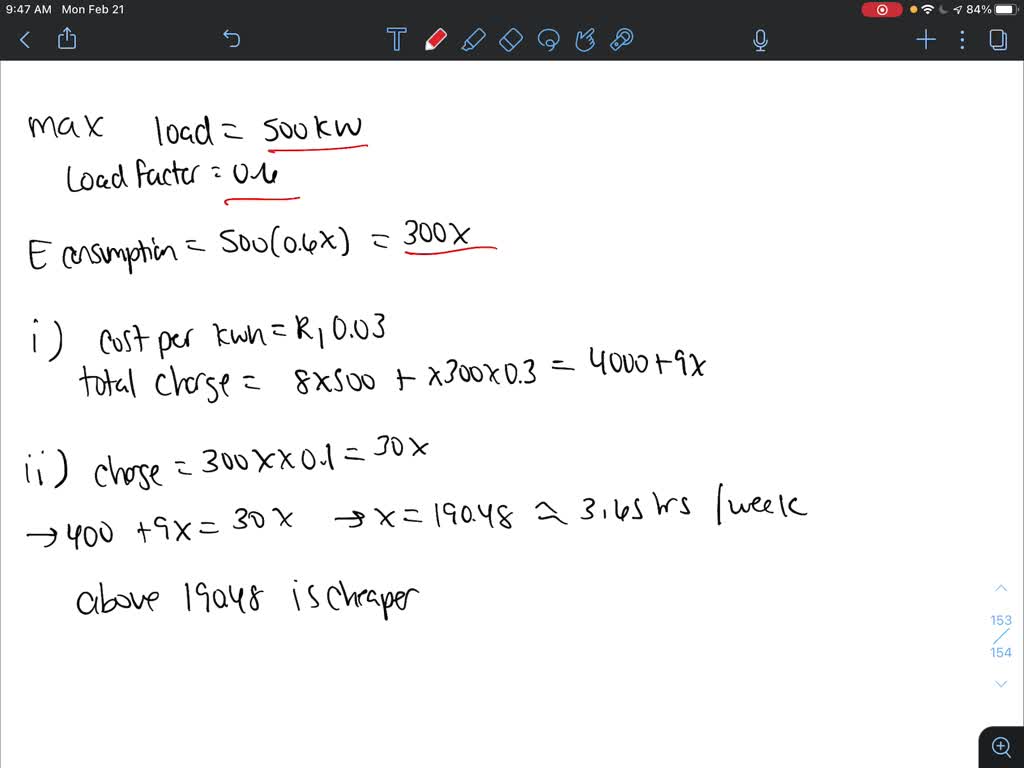 9:47 AM Mon Feb 21
84%
max load = 500kW
Load factor = 0.6
E consumption = 500(0.6x) = 300x
i) cost per kwh = R, 0.03
total charge = 8x500 + x300x0.3 = 4000+9x
ii) charge = 300xx0.1 = 30x
→ 400 +9x = 30x → x = 190.48 ≈ 3.65 hrs /week
above 190.48 is cheaper
153
154